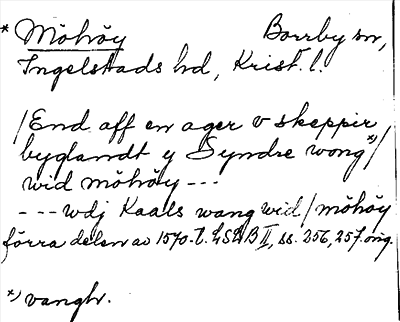 * Möhöy Borrby sn,
Ingelstads hd, Krist. l.
/End aff en ager v skeppir
byglandt y Syndre wong*)/
wid möhöy ---
--- wdj Kaals wang wid/möhöy
förra delen av 1570-t. LSUB II, ss. 256, 257. orig.
*) vanghr.